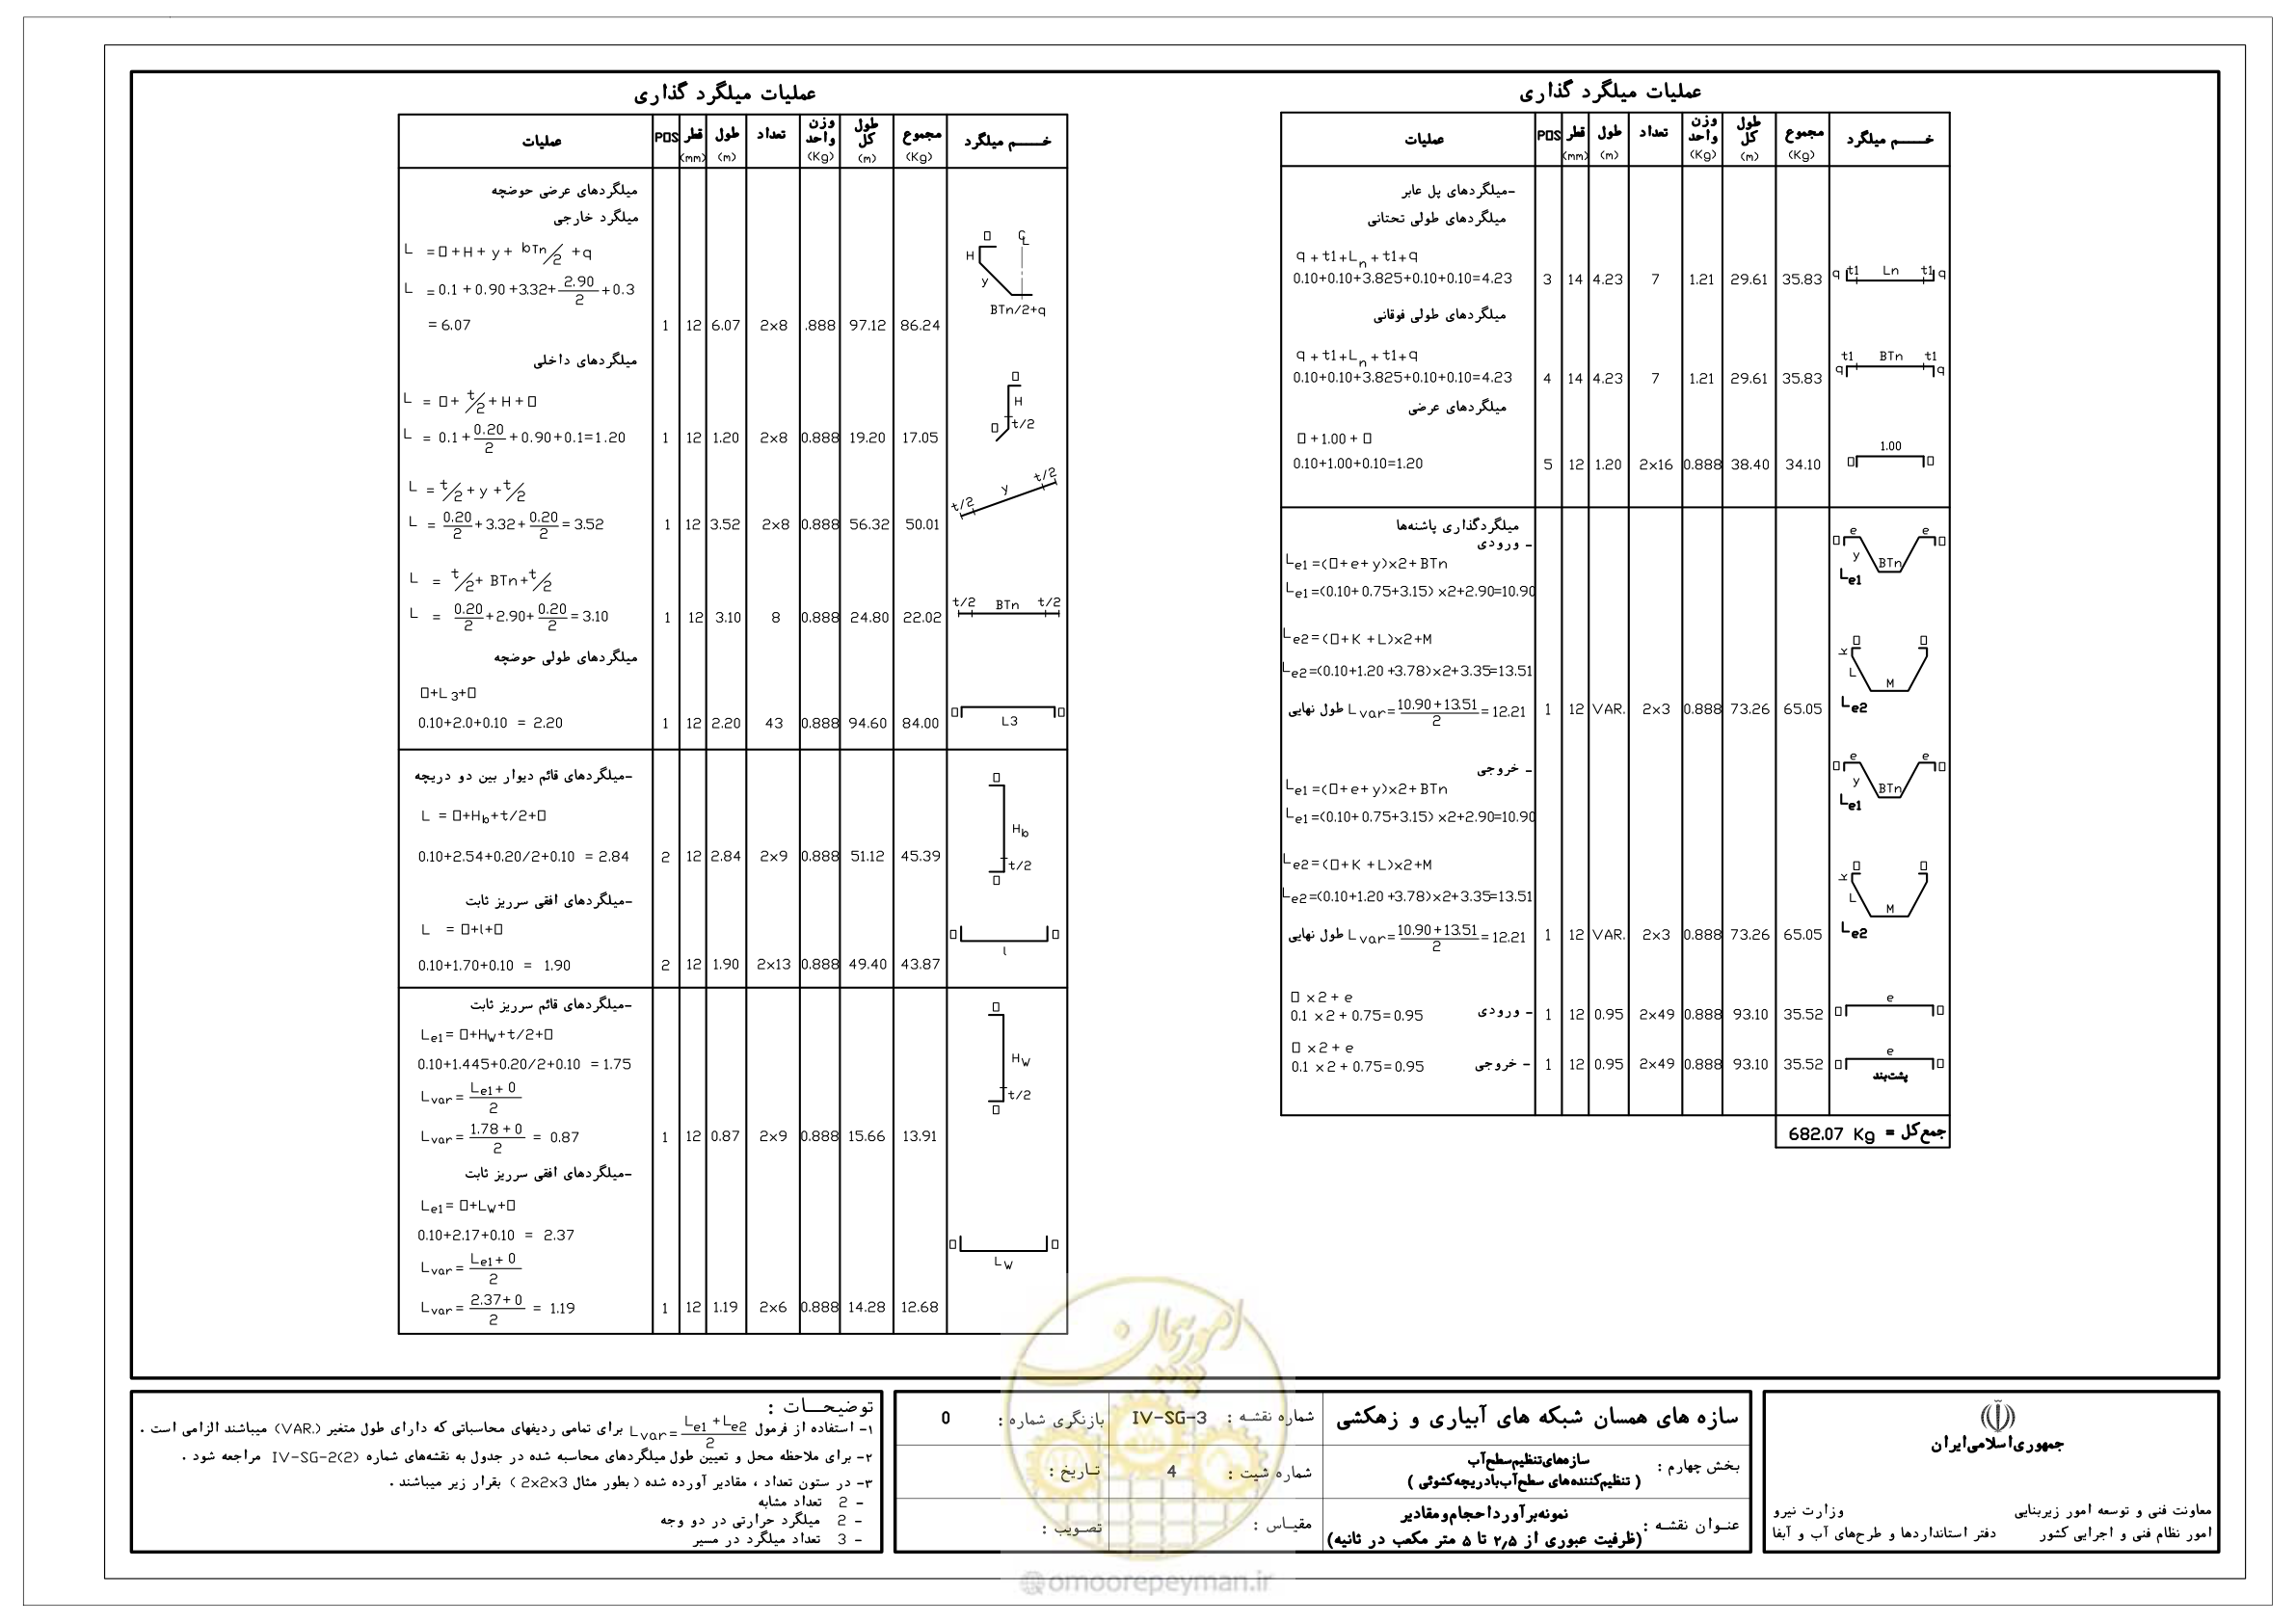 عملیات میلگرد گذاری
عملیات POS قطر (mm) طول (m) تعداد وزن واحد (Kg) طول کل (m) مجموع (Kg) خـــم میلگرد
میلگردهای عرضی حوضچه
میلگرد خارجی
L = □ + H + y + bTn/2 + q
L = 0.1 + 0.90 + 3.32 + 2.90/2 + 0.3
= 6.07 1 12 6.07 2x8 .888 97.12 86.24
□ ℄ H y BTn/2+q
میلگردهای داخلی
L = □ + t/2 + H + □
L = 0.1 + 0.20/2 + 0.90 + 0.1 = 1.20 1 12 1.20 2x8 0.888 19.20 17.05
□ H t/2 □
L = t/2 + y + t/2
L = 0.20/2 + 3.32 + 0.20/2 = 3.52 1 12 3.52 2x8 0.888 56.32 50.01
t/2 y t/2
L = t/2 + BTn + t/2
L = 0.20/2 + 2.90 + 0.20/2 = 3.10 1 12 3.10 8 0.888 24.80 22.02
t/2 BTn t/2
میلگردهای طولی حوضچه
□+L3+□
0.10+2.0+0.10 = 2.20 1 12 2.20 43 0.888 94.60 84.00
□ L3 □
-میلگردهای قائم دیوار بین دو دریچه
L = □+Hb+t/2+□
0.10+2.54+0.20/2+0.10 = 2.84 2 12 2.84 2x9 0.888 51.12 45.39
□ Hb t/2 □
-میلگردهای افقی سرریز ثابت
L = □+l+□
0.10+1.70+0.10 = 1.90 2 12 1.90 2x13 0.888 49.40 43.87
□ l □
-میلگردهای قائم سرریز ثابت
Le1= □+Hw+t/2+□
0.10+1.445+0.20/2+0.10 = 1.75
Lvar= Le1+0/2
Lvar= 1.78+0/2 = 0.87 1 12 0.87 2x9 0.888 15.66 13.91
□ Hw t/2 □
-میلگردهای افقی سرریز ثابت
Le1= □+Lw+□
0.10+2.17+0.10 = 2.37
Lvar= Le1+0/2
Lvar= 2.37+0/2 = 1.19 1 12 1.19 2x6 0.888 14.28 12.68
□ Lw □
عملیات میلگرد گذاری
عملیات POS قطر (mm) طول (m) تعداد وزن واحد (Kg) طول کل (m) مجموع (Kg) خـــم میلگرد
-میلگردهای پل عابر
میلگردهای طولی تحتانی
q + t1+Ln + t1+q
0.10+0.10+3.825+0.10+0.10=4.23 3 14 4.23 7 1.21 29.61 35.83
q t1 Ln t1 q
میلگردهای طولی فوقانی
q + t1+Ln + t1+q
0.10+0.10+3.825+0.10+0.10=4.23 4 14 4.23 7 1.21 29.61 35.83
t1 BTn t1 q q
میلگردهای عرضی
□ +1.00 + □
0.10+1.00+0.10=1.20 5 12 1.20 2x16 0.888 38.40 34.10
□ 1.00 □
میلگردگذاری پاشنه‌ها
- ورودی
Le1 =(□+e+y)x2+BTn
Le1 =(0.10+0.75+3.15) x2+2.90=10.90
□ e e □ y BTn Le1
Le2=(□+K +L)x2+M
Le2=(0.10+1.20 +3.78)x2+3.35=13.51
طول نهایی Lvar= 10.90+13.51/2 = 12.21 1 12 VAR. 2x3 0.888 73.26 65.05
□ □ K L M Le2
- خروجی
Le1 =(□+e+y)x2+BTn
Le1 =(0.10+0.75+3.15) x2+2.90=10.90
□ e e □ y BTn Le1
Le2=(□+K +L)x2+M
Le2=(0.10+1.20 +3.78)x2+3.35=13.51
طول نهایی Lvar= 10.90+13.51/2 = 12.21 1 12 VAR. 2x3 0.888 73.26 65.05
□ □ K L M Le2
□ x2 + e
0.1 x2 + 0.75=0.95 - ورودی 1 12 0.95 2x49 0.888 93.10 35.52
□ e □
□ x2 + e
0.1 x2 + 0.75=0.95 - خروجی 1 12 0.95 2x49 0.888 93.10 35.52
□ e □
پشت‌بند
جمع کل = 682.07 Kg
توضیحـــات :
۱- استفاده از فرمول Lvar= Le1+Le2/2 برای تمامی ردیفهای محاسباتی که دارای طول متغیر (VAR.) میباشند الزامی است .
۲- برای ملاحظه محل و تعیین طول میلگردهای محاسبه شده در جدول به نقشه‌های شماره IV-SG-2(2) مراجعه شود .
۳- در ستون تعداد ، مقادیر آورده شده ( بطور مثال 2x2x3 ) بقرار زیر میباشند .
- 2 تعداد مشابه
- 2 میلگرد حرارتی در دو وجه
- 3 تعداد میلگرد در مسیر
سازه های همسان شبکه های آبیاری و زهکشی
شماره نقشـه : IV-SG-3
بازنگری شماره : 0
بخش چهارم : سازه‌های‌تنظیم‌سطح‌آب
( تنظیم‌کننده‌های سطح‌آب‌بادریچه‌کشوئی )
شماره شیت : 4
تـاریخ :
عنـوان نقشـه : نمونه‌برآورداحجام‌ومقادیر
(ظرفیت عبوری از ۲٫۵ تا ۵ متر مکعب در ثانیه)
مقیـاس :
تصـویب :
جمهوری‌اسلامی‌ایران
معاونت فنی و توسعه امور زیربنایی
امور نظام فنی و اجرایی کشور
وزارت نیرو
دفتر استانداردها و طرح‌های آب و آبفا
امور پیمان
@omoorepeyman.ir